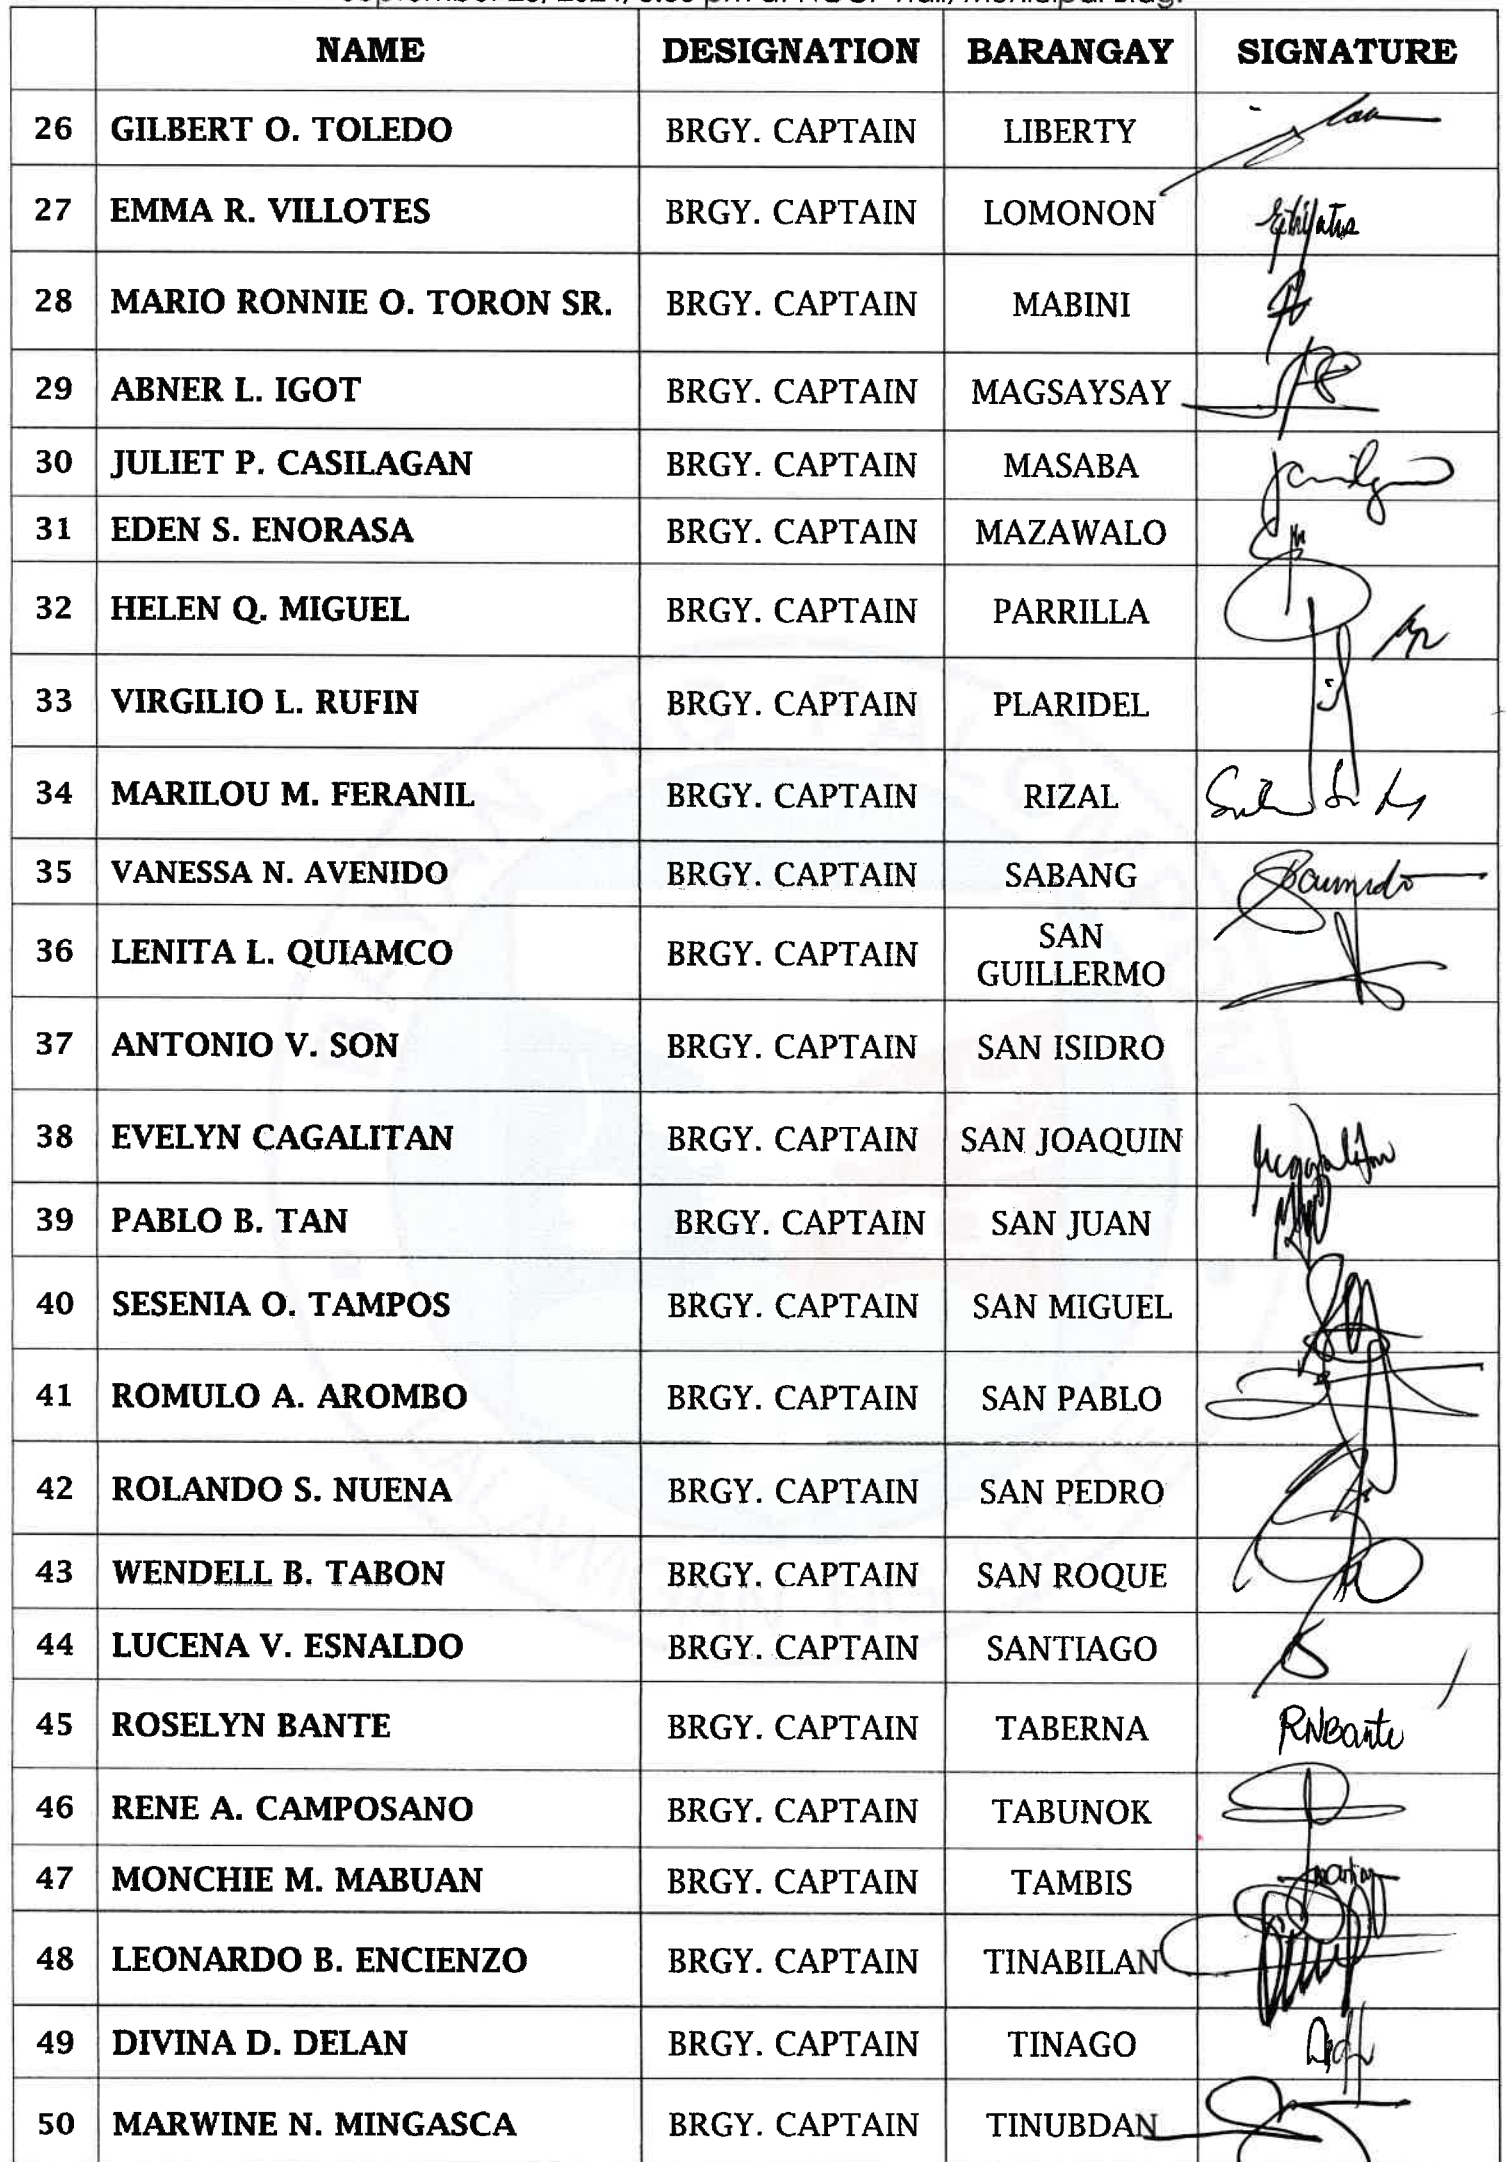 NAME DESIGNATION BARANGAY SIGNATURE
26 GILBERT O. TOLEDO BRGY. CAPTAIN LIBERTY
27 EMMA R. VILLOTES BRGY. CAPTAIN LOMONON
28 MARIO RONNIE O. TORON SR. BRGY. CAPTAIN MABINI
29 ABNER L. IGOT BRGY. CAPTAIN MAGSAYSAY
30 JULIET P. CASILAGAN BRGY. CAPTAIN MASABA
31 EDEN S. ENORASA BRGY. CAPTAIN MAZAWALO
32 HELEN Q. MIGUEL BRGY. CAPTAIN PARRILLA
33 VIRGILIO L. RUFIN BRGY. CAPTAIN PLARIDEL
34 MARILOU M. FERANIL BRGY. CAPTAIN RIZAL
35 VANESSA N. AVENIDO BRGY. CAPTAIN SABANG
36 LENITA L. QUIAMCO BRGY. CAPTAIN SAN
GUILLERMO
37 ANTONIO V. SON BRGY. CAPTAIN SAN ISIDRO
38 EVELYN CAGALITAN BRGY. CAPTAIN SAN JOAQUIN
39 PABLO B. TAN BRGY. CAPTAIN SAN JUAN
40 SESENIA O. TAMPOS BRGY. CAPTAIN SAN MIGUEL
41 ROMULO A. AROMBO BRGY. CAPTAIN SAN PABLO
42 ROLANDO S. NUENA BRGY. CAPTAIN SAN PEDRO
43 WENDELL B. TABON BRGY. CAPTAIN SAN ROQUE
44 LUCENA V. ESNALDO BRGY. CAPTAIN SANTIAGO
45 ROSELYN BANTE BRGY. CAPTAIN TABERNA RNBante
46 RENE A. CAMPOSANO BRGY. CAPTAIN TABUNOK
47 MONCHIE M. MABUAN BRGY. CAPTAIN TAMBIS
48 LEONARDO B. ENCIENZO BRGY. CAPTAIN TINABILAN
49 DIVINA D. DELAN BRGY. CAPTAIN TINAGO
50 MARWINE N. MINGASCA BRGY. CAPTAIN TINUBDAN